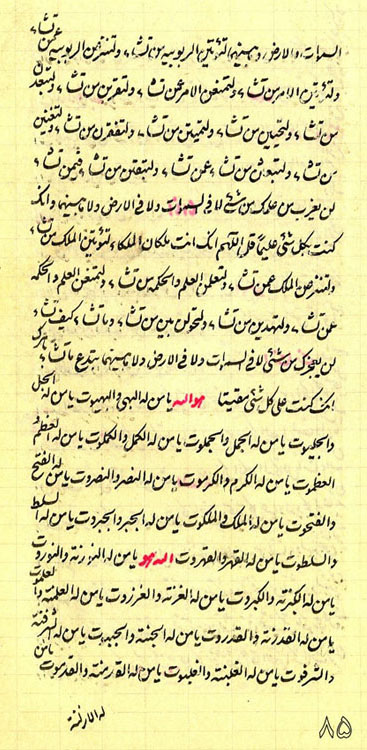 السموات والارض وما بينهما لتؤتين الربوبيه من تشاء ولتنزعن الربوبيه عمن تشاء
ولتؤتين الامر من تشاء ولتمنعن الامر عمن تشاء ولتقربن من تشاء ولتبعدن
من تشاء ولتحيين من تشاء ولتميتن من تشاء ولتفقرن من تشاء ولتغنين
من تشاء عمن تشاء ولتبقين من تشاء
لن يعزب من علمك من شئ لا فى السموات ولا فى الارض ولا ما بينهما وانك
كنت بكل شئ عليما قل اللهم انك انت ملكان الملكاء لتؤتين الملك من تشاء
ولتنزعن الملك عمن تشاء ولتعلمن العلم والحكمه من تشاء ولتمنعن العلم والحكمه
عمن تشاء ولتهدين من تشاء من تشاء وبما تشاء كيف تشاء
لن يعجزك من شئ لا فى السموات ولا فى الارض ولا ما بينهما تبدع ما تشاء بامرك
انك كنت على كل شئ مقيتا هو الله يا من له البهى والبهيوت يا من له الجلل
والجليوت يا من له الجمل والجملوت يا من له الكمل والكملوت يا من له العظم و
العظموت يا من له الكرم والكرموت يا من له النصر والنصروت يا من له الفتح
والفتحوت يا من له الملك والملكوت يا من له الجبر والجبروت يا من له السلط
والسلطوت يا من له القهر والقهروت الله هو يا من له النورنة والنوروت
يا من له الكبرنة والكبروت يا من له العزنة والعززوت يا من له العلمنة والعلموت
يا من له القدرنة والقدروت يا من له الحبنة والحببوت يا من له الشرفنة
والشرفوت يا من له الغلبنة والغلبوت يا من له القدمنة والقدموت يا من
له الازلنة
٨۵